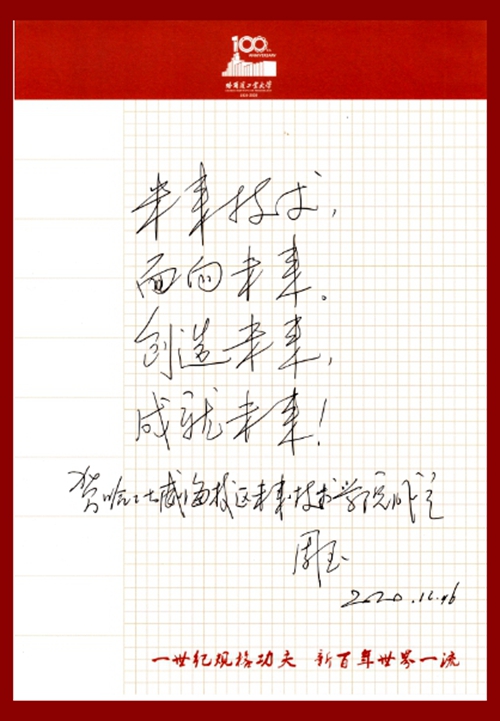 100th
ANNIVERSARY
哈尔滨工业大学
1920-2020
未来技术，
面向未来。
创造未来，
成就未来！
贺哈工大威海校区未来技术学院成立
周玉
2020.12.16
一世纪规格功夫 新百年世界一流